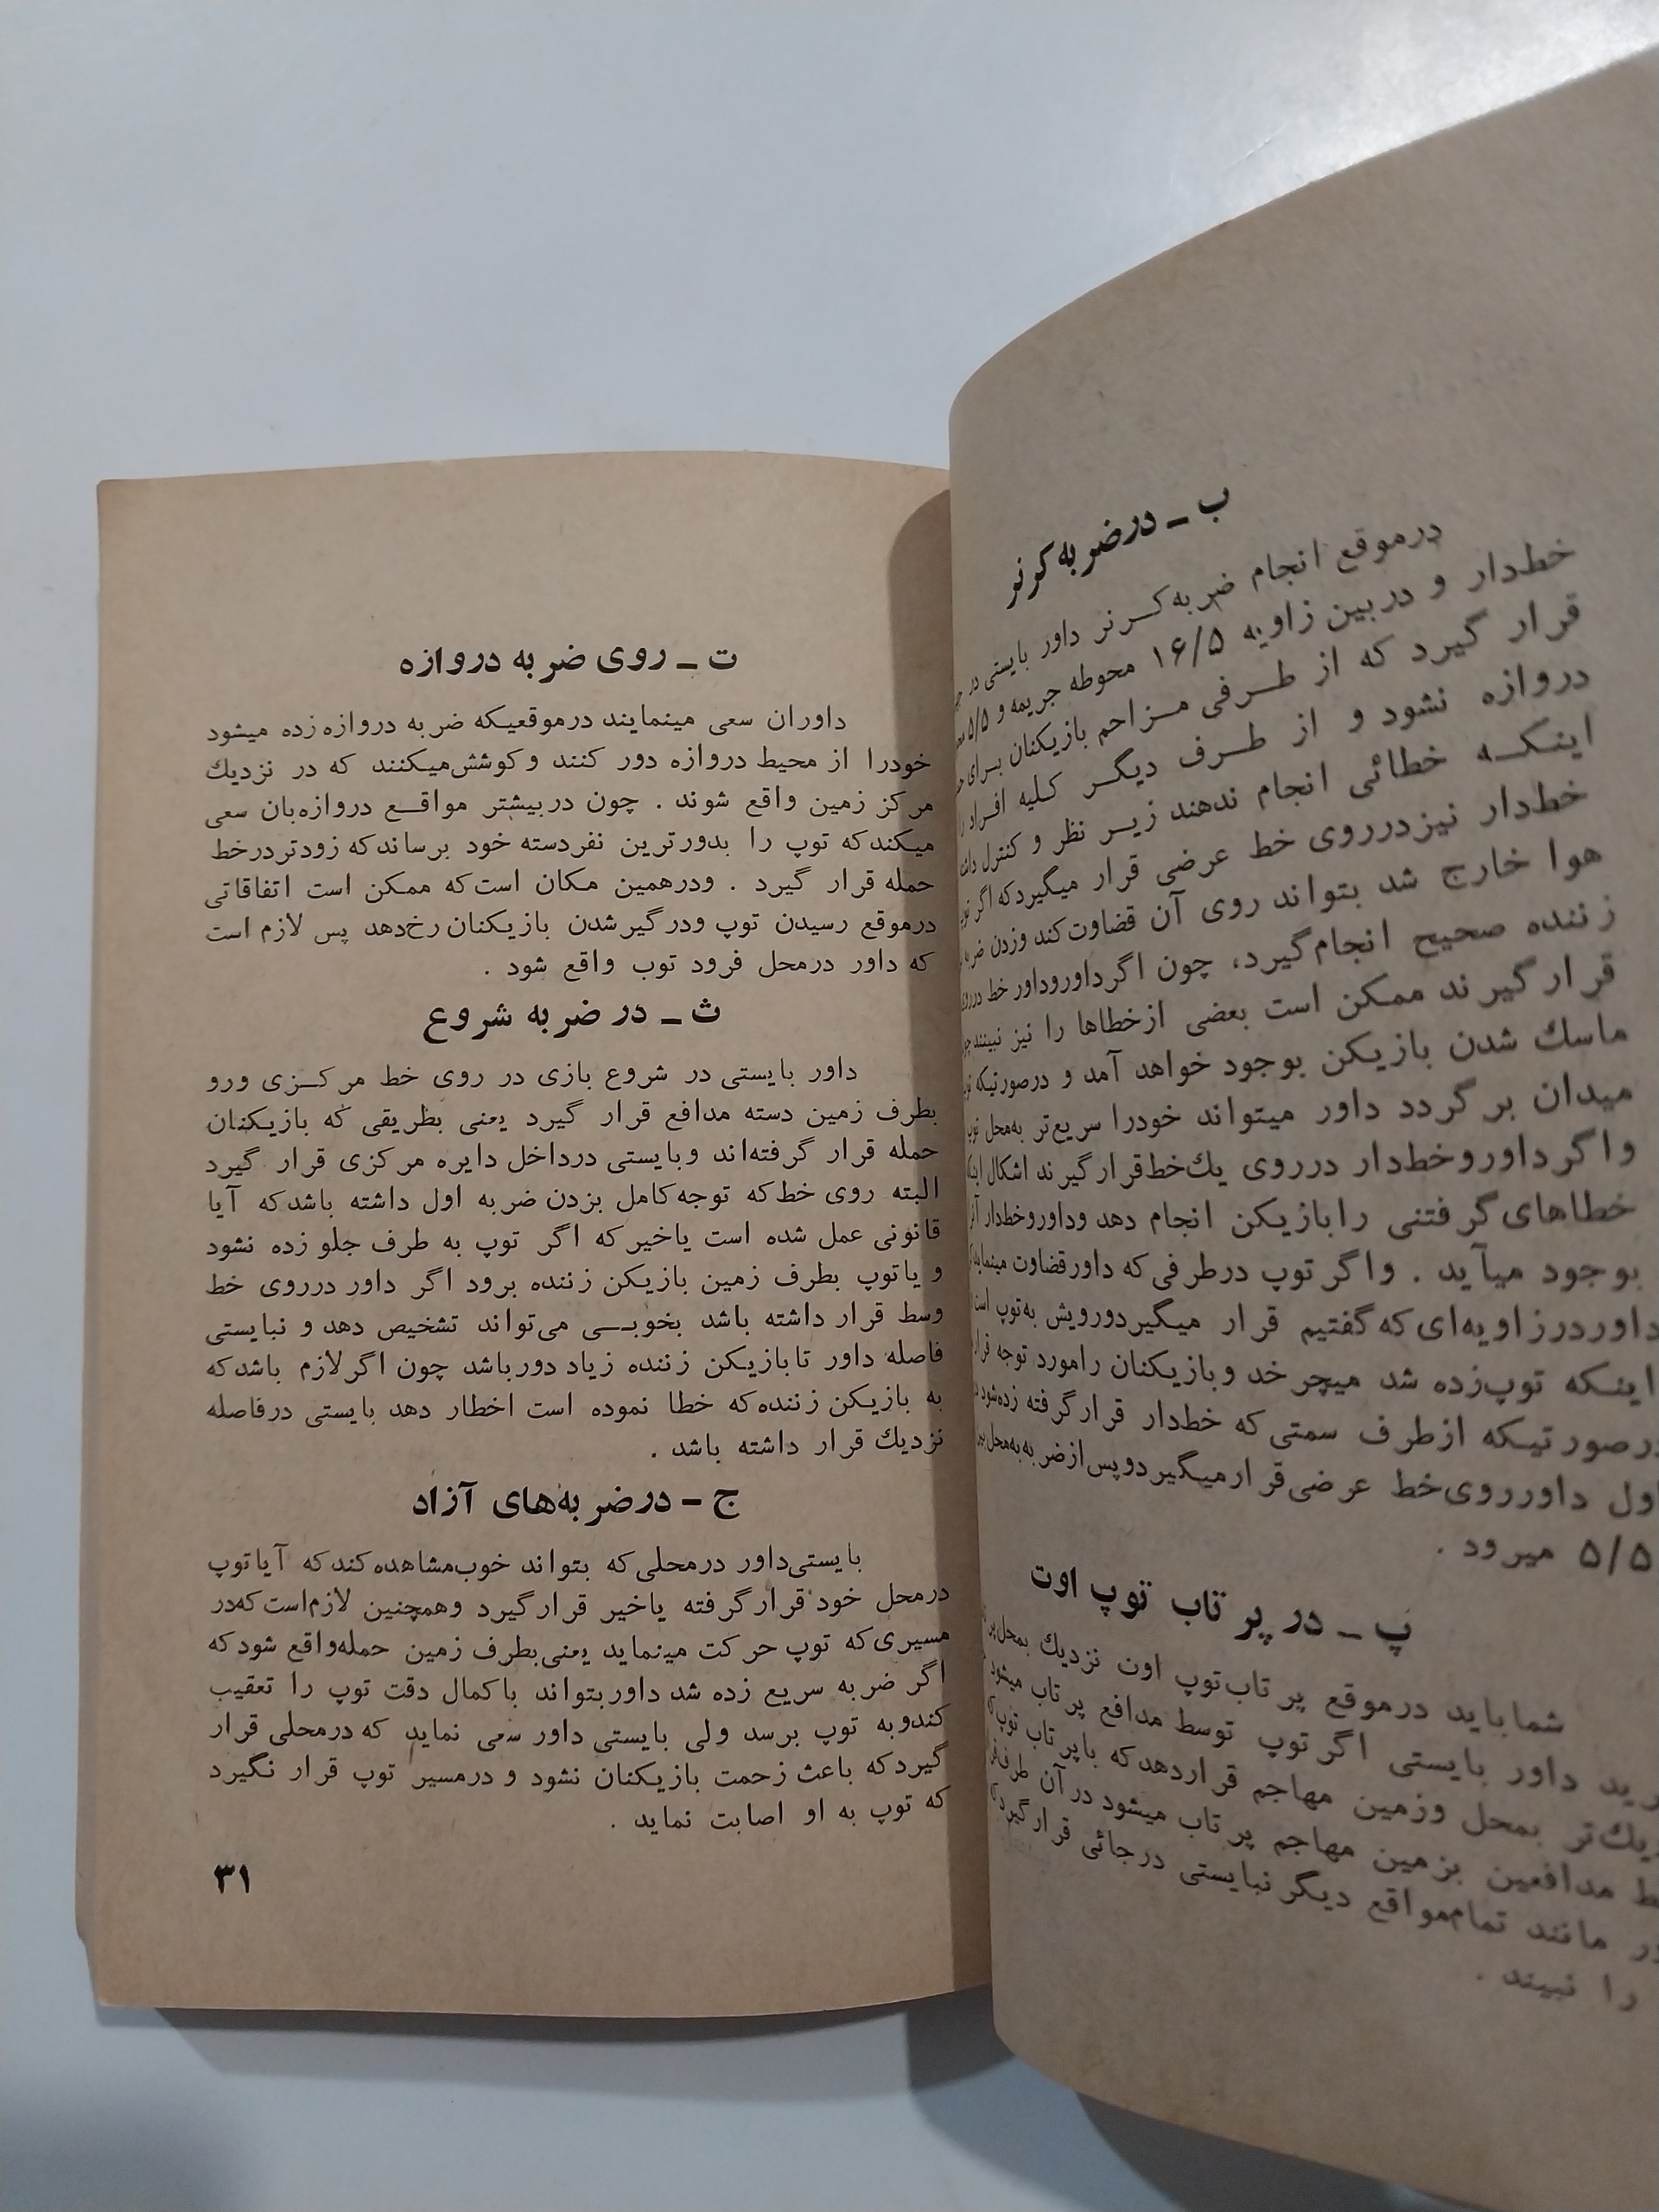 ب ــ درضربه‌کرنر
درموقع انجام ضربه‌کـرنر داور بایستی در
خط‌دار و دربین زاویه ۱۶/۵ محوطه جریمه و ۵/۵
قرار گیرد که از طـرفی مـزاحم بازیکنان بـرای
دروازه نشود و از طـرف دیگـر کـلیه افـراد
اینکـه خطائی انجام ندهند زیـر نظر و کنترل
خط‌دار نیزدرروی خط عرضی قرار میگیردکه اگر
هوا خارج شد بتواند روی آن قضاوت‌کند وزدن
زننده صحیح انجام‌گیرد، چون اگرداوروداور خط
قرارگیرند ممکن است بعضی ازخطاها را نیز نبینند
ماسك شدن بازیکن بوجود خواهد آمد و درصورتیکه
میدان برگردد داور میتواند خودرا سریع‌تر به‌محل
واگرداوروخط‌دار درروی یك‌خط‌قرارگیرند اشکال
خطاهای‌گرفتنی رابازیکن انجام دهد وداوروخط‌دار
بوجود میآید . واگرتوپ درطرفی‌که داورقضاوت
داوردرزاویه‌ای‌که‌گفتیم قرار میگیردورویش به‌توپ
اینکه توپ‌زده شد میچرخد وبازیکنان رامورد توجه
درصورتیکه ازطرف سمتی‌که خط‌دار قرارگرفته زده‌شود
اول داورروی‌خط عرضی‌قرارمیگیردوپس‌ازضربه
۵/۵ میرود .
پ ــ در پرتاب توپ اوت
شماباید درموقع پرتاب‌توپ اوت نزدیك
داور بایستی اگرتوپ توسط مدافع پرتاب میشود
بمحل وزمین مهاجم قراردهدکه باپرتاب
مدافعین بزمین مهاجم پرتاب میشود درآن
مانند تمام‌مواقع دیگرنبایستی درجائی قرارگیرد
را نبیند .
ت ــ روی ضربه دروازه
داوران سعی مینمایند درموقعیکه ضربه دروازه‌زده میشود
خودرا از محیط دروازه دور کنند وکوشش‌میکنند که در نزدیك
مرکز زمین واقع شوند . چون دربیشتر مواقـع دروازه‌بان سعی
میکندکه توپ را بدورترین نفردسته خود برساندکه زودتردرخط
حمله قرار گیرد . ودرهمین مکان است‌که ممکن است اتفاقاتی
درموقع رسیدن توپ ودرگیرشدن بازیکنان‌رخ‌دهد پس لازم است
که داور درمحل فرود توب واقع شود .
ث ــ در ضربه شروع
داور بایستی در شروع بازی در روی خط مرکـزی ورو
بطرف زمین دسته مدافع قرار گیرد یعنی بطریقی که بازیکنان
حمله قرار گرفته‌اند وبایستی درداخل دایره مرکزی قرار گیرد
البته روی خط‌که توجه‌کامل بزدن ضربه اول داشته باشدکه آیا
قانونی عمل شده است یاخیرکه اگر توپ به طرف جلو زده نشود
و یاتوپ بطرف زمین بازیکن زننده برود اگر داور درروی خط
وسط قرار داشته باشد بخوبـی می‌تواند تشخیص دهد و نبایستی
فاصله داور تابازیکن زننده زیاد دورباشد چون اگرلازم باشدکه
به بازیکن زننده‌که خطا نموده است اخطار دهد بایستی درفاصله
نزدیك قرار داشته باشد .
ج ــ درضربه‌های آزاد
بایستی‌داور درمحلی‌که بتواند خوب‌مشاهده‌کندکه آیاتوپ
درمحل خود قرارگرفته یاخیر قرارگیرد وهمچنین لازم‌است‌که‌در
مسیری‌که توپ حرکت مینماید یعنی‌بطرف زمین حمله‌واقع شودکه
اگر ضربه سریع زده شد داوربتواند باکمال دقت توپ را تعقیب
کندوبه توپ برسد ولی بایستی داور سعی نماید که درمحلی قرار
گیردکه باعث زحمت بازیکنان نشود و درمسیر توپ قرار نگیرد
که توپ به او اصابت نماید .
۳۱